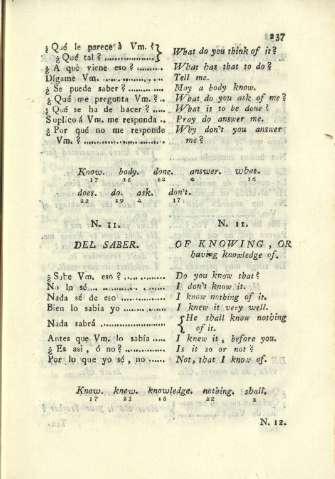 237
¿ Qué le parece à Vm. ?
¿ Qué tal ? ..................
What do you think of it?
¿ A qué viene eso ? ........... What has that to do?
Dígame Vm. ................ Tell me.
¿ Se puede saber ? ............ May a body know.
¿ Qué me pregunta Vm. ? .. What do you ask of me?
¿ Qué se ha de hacer ? ..... What it to be done?
Suplico á Vm. me responda .. Pray do answer me.
¿ Por qué no me responde Why don't you answer
Vm. ? ........................ me?
Know. body. done. answer. what.
17 16 12 16
does. do. ask. don't.
22 19 4 17
N. 11. N. 11.
DEL SABER. OF KNOWING , OR
having knowledge of.
¿ Sabe Vm. eso ? .............. Do you know that?
No lo sé..................... I don't know it.
Nada sé de eso ............... I know nothing of it.
Bien lo sabia yo ............. I knew it very well.
Nada sabrá ................... { He shall know nothing
of it.
Antes que Vm. lo sabía ..... I knew it , before you.
¿ Es así , ó no ? ............... Is it so or not?
Por lo que yo sé , no ...... Not, that I know of.
Know. knew. knowledge. nothing. shall.
17 23 16 22 2
N. 12.